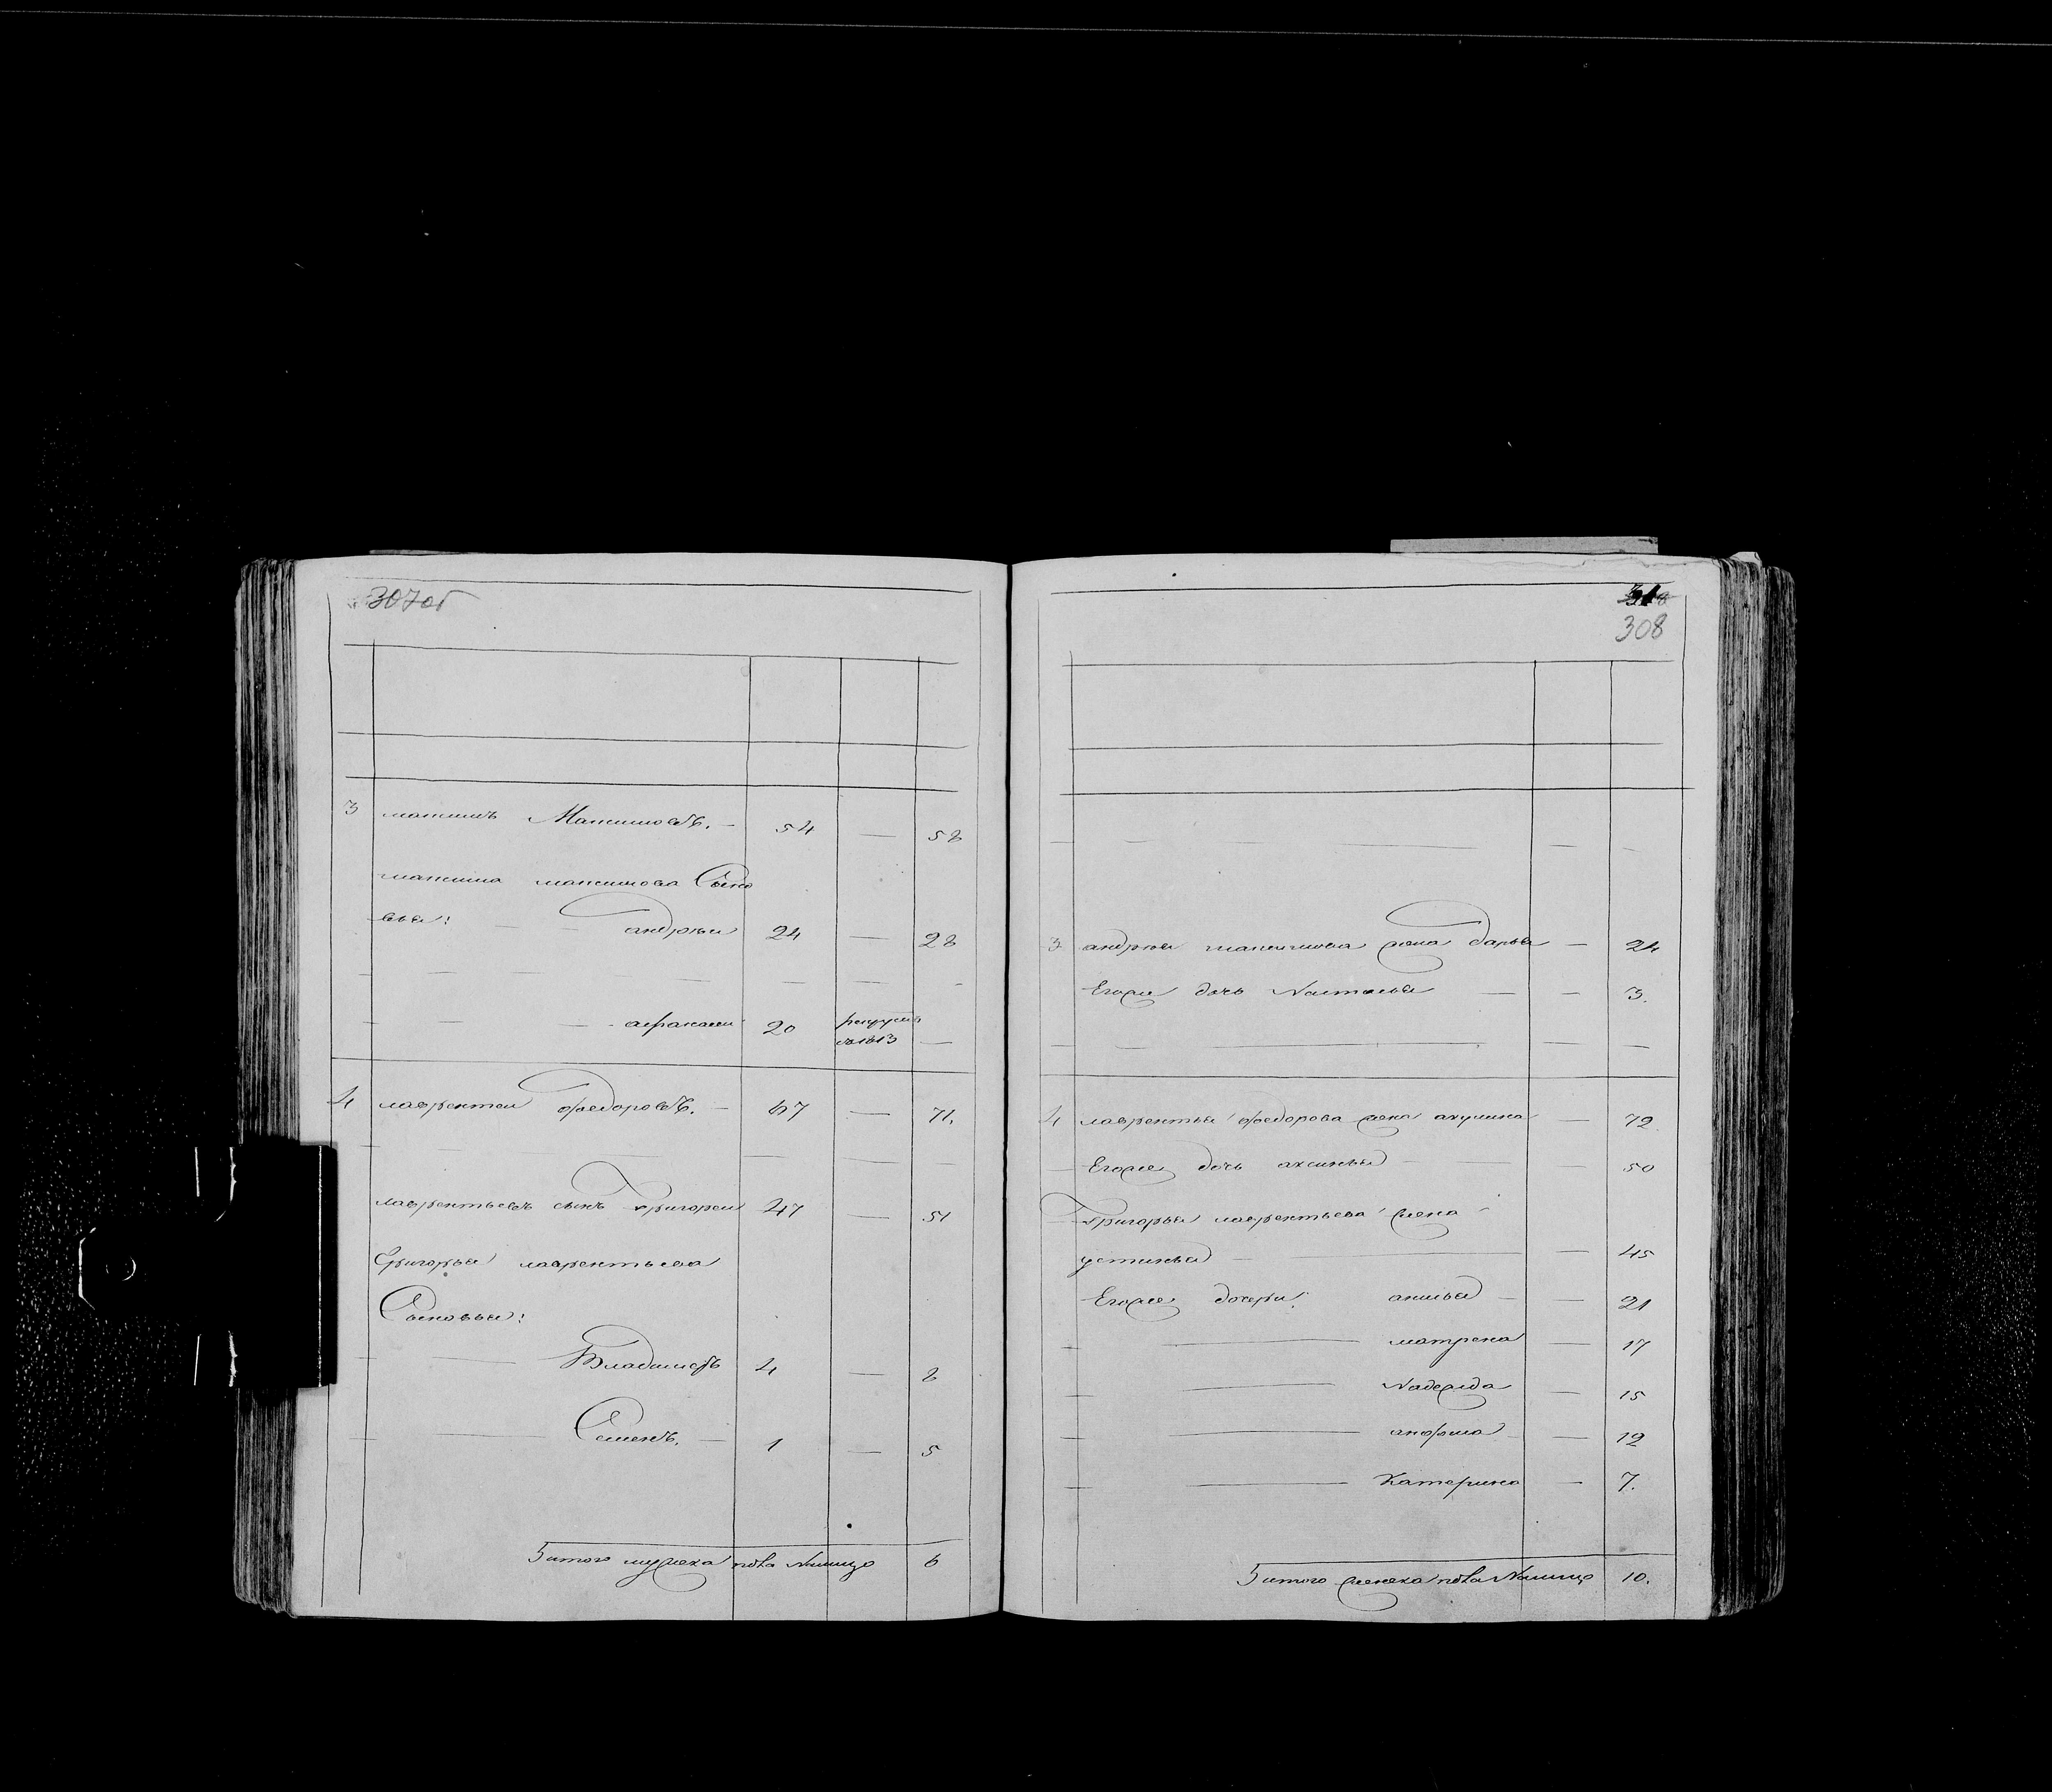 307об
3 максимъ Максимовъ. — 54 — 58
максима максимова Сыно
вья: андрей 24 — 28
афанасей 20 рекрутъ —
въ 1813
4 лаврентей федоровъ. — 67 — 71.
лаврентьевъ сынъ григорей 47 — 51
Григорья лаврентьева
Сыновья:
Владимеръ 4 — 8
Семенъ. — 1 — 5
итого мужеска пола Налицо 6
308
3 андрея максимова жена дарья — 24
Егоже дочь Наталья — — 3.
4 лаврентья федорова жена акулина — 72.
Егоже дочь аксинья — — 50
григорья лаврентьева жена
устинья — — 45
Егоже дочери: анисья — — 21
— матрена — 17
— Надежда — 15
— анфиса — 12
— Катерина — 7.
итого женска пола Налицо 10.